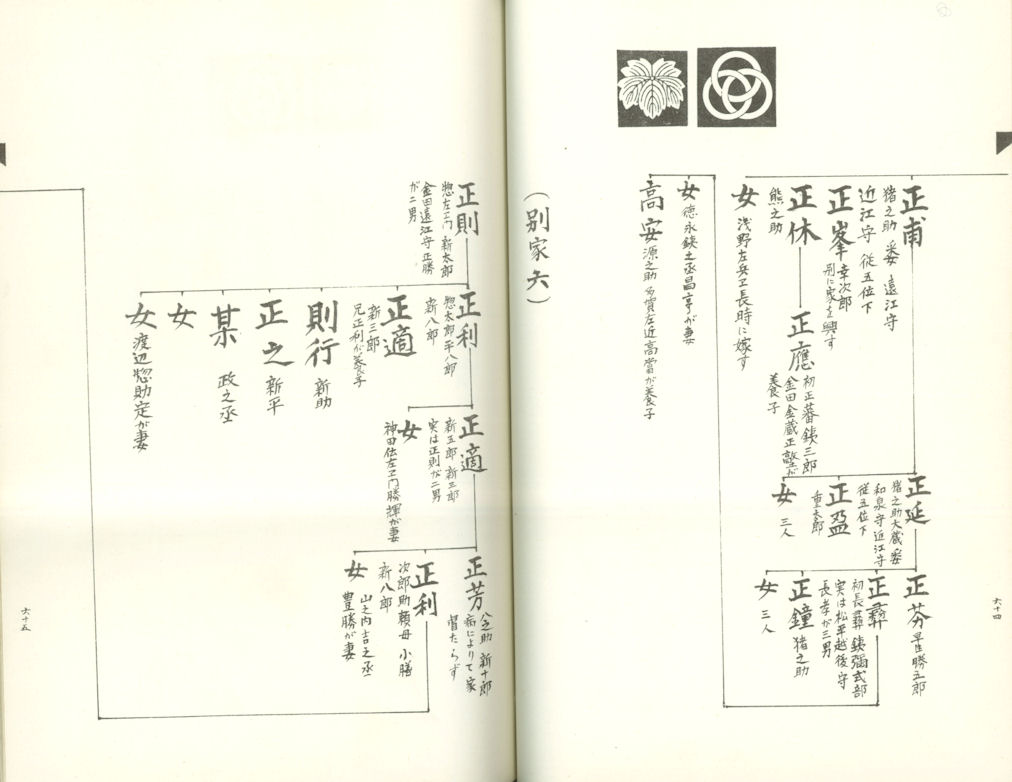 正甫
猪之助 釆女 遠江守
近江守 従五位下
正峯 幸次郎
別に家を興す
正休
熊之助
女 浅野左兵エ長時に嫁す
正應
初正蕃 銕三郎
金田金蔵正敬が
養子
正延
猪之助 大蔵
和泉守 近江守
従五位下
正盈
重太郎
女 三人
正芬 早世 勝五郎
正彜
初長彜 銕彌 式部
実は松平越後守
長孝が三男
正鐘 猪之助
女 三人
女 徳永銕之丞昌亨が妻
高安 源之助 多賀左近高當が養子
六十四
(別家六)
正則
惣左エ門 新太郎
金田遠江守正勝
が二男
正利
惣太郎 平八郎
新八郎
正適
新三郎
兄正利が養子
則行 新助
正之 新平
某 政之丞
女
女 渡辺惣助定が妻
正適
新五郎 新三郎
実は正則が二男
女
神田伝左エ門勝輝が妻
正芳
八之助 新十郎
病によりて家
督たらず
正利
次郎助 頼母 小膳
新八郎
女
山之内吉之丞
豊勝が妻
六十五